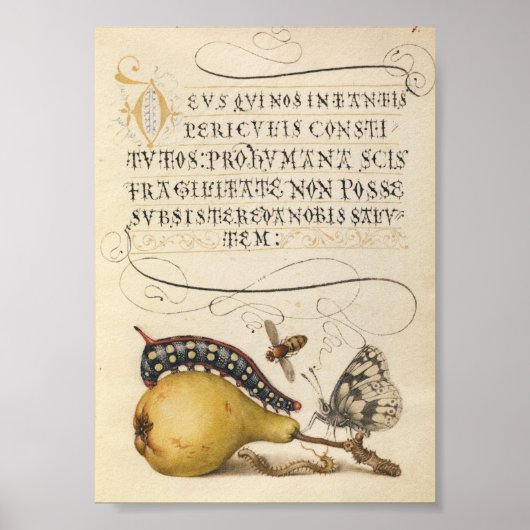 DEUS QUI NOS IN TANTIS
PERICULIS CONSTI-
TUTOS: PRO HUMANA SCIS
FRAGILITATE NON POSSE
SUBSISTERE DA NOBIS SALU-
TEM: